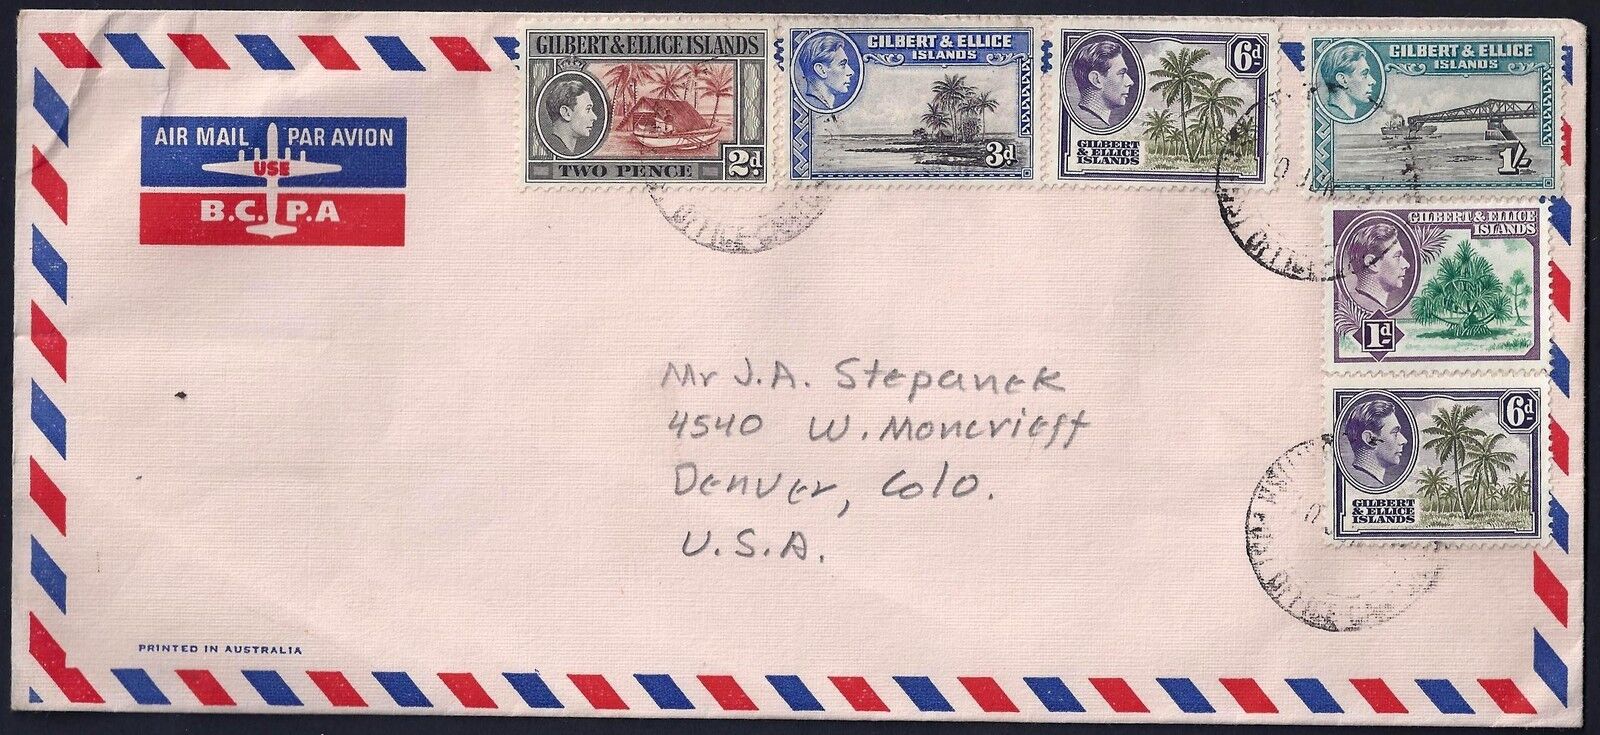 GILBERT & ELLICE ISLANDS
TWO PENCE 2d
GILBERT & ELLICE
ISLANDS
3d
6d
GILBERT
& ELLICE
ISLANDS
GILBERT & ELLICE
ISLANDS
1/-
AIR MAIL PAR AVION
USE
B.C.P.A
GILBERT & ELLICE
ISLANDS
1d
Mr J.A. Stepanek
4540 W. Moncrieff
Denver, Colo.
U.S.A.
6d
GILBERT
& ELLICE
ISLANDS
POST OFFICE
PRINTED IN AUSTRALIA